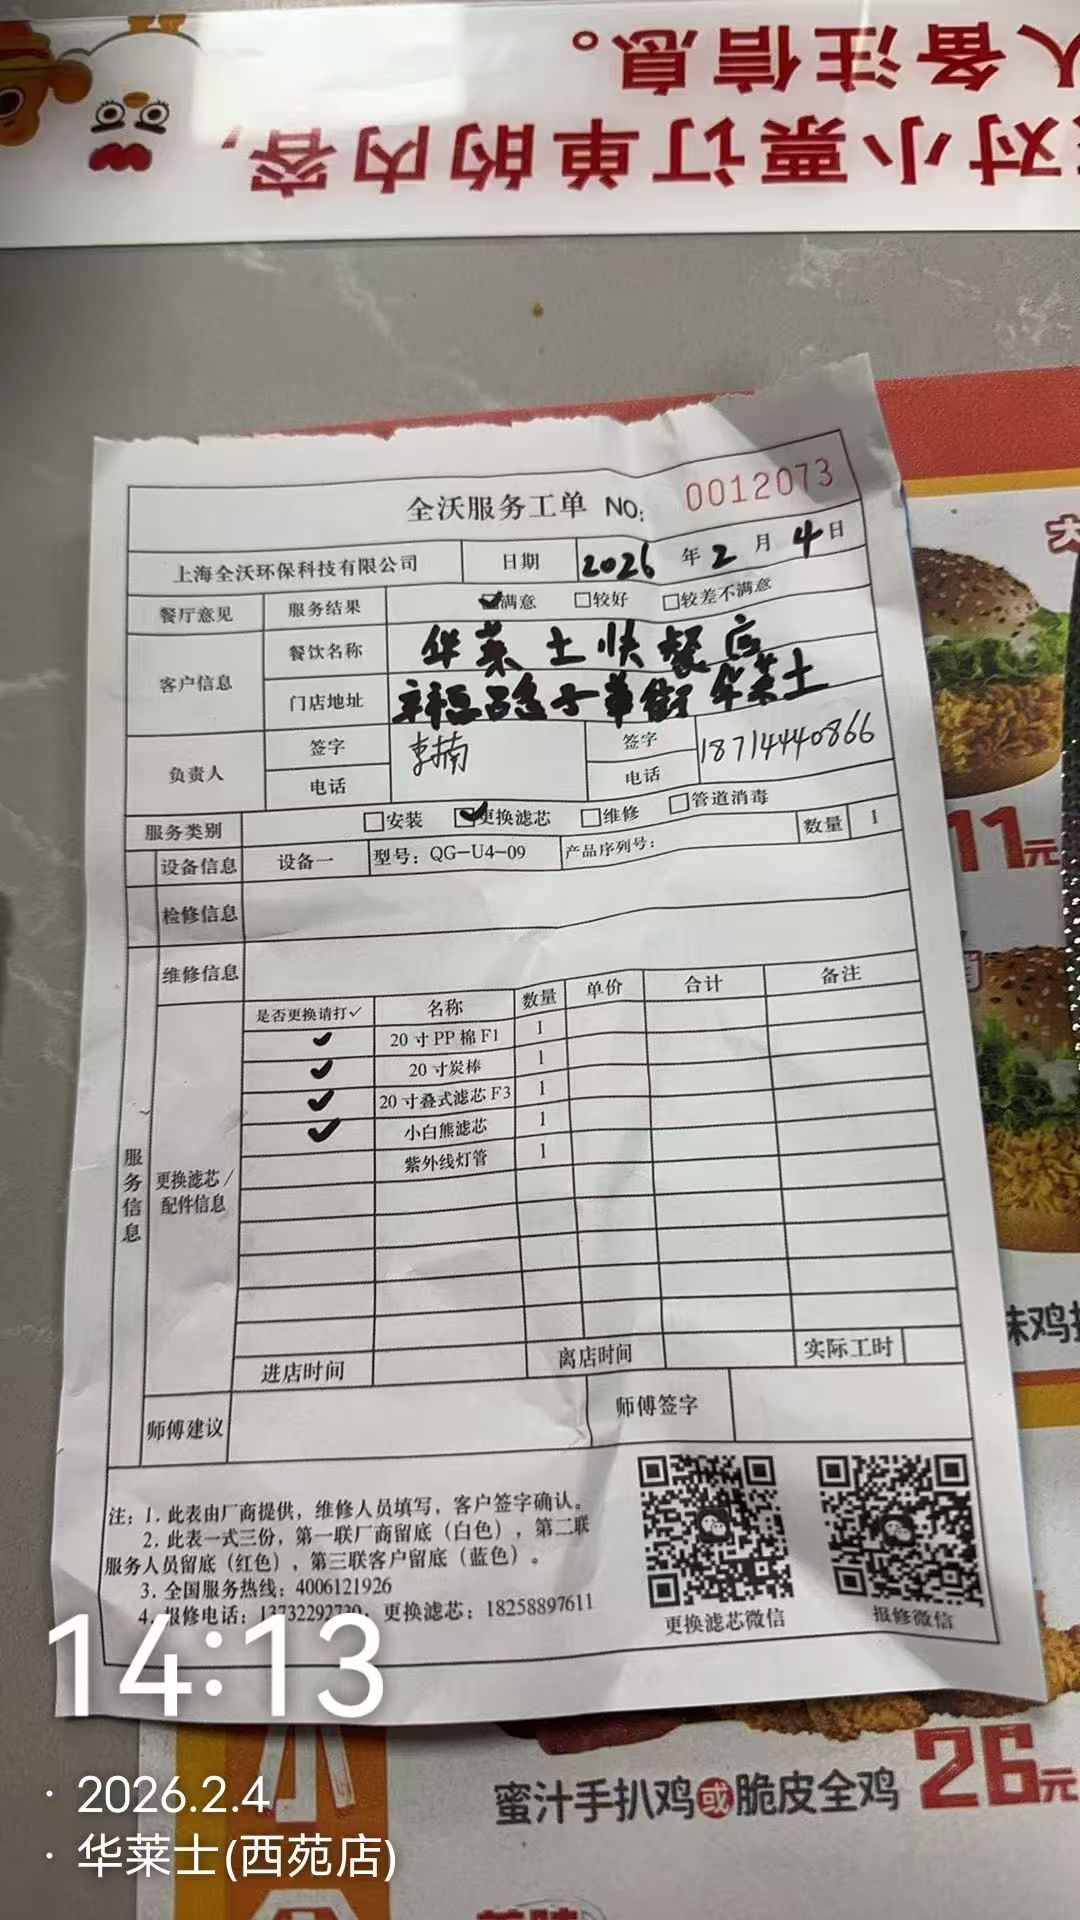 人备注信息。
对小票订单的内容,
全沃服务工单 NO: 0012073
上海全沃环保科技有限公司 日期 2026 年 2 月 4 日
餐厅意见 服务结果 满意 较好 较差不满意
客户信息 餐饮名称 华莱士快餐店
门店地址 华莱士
负责人 签字 李楠 签字 18714440866
电话 电话
服务类别 安装 更换滤芯 维修 管道消毒
设备信息 设备一 型号: QG-U4-09 产品序列号: 数量 1
检修信息
维修信息
是否更换请打✓ 名称 数量 单价 合计 备注
✓ 20 寸 PP 棉 F1 1
✓ 20 寸炭棒 1
✓ 20 寸叠式滤芯 F3 1
✓ 小白熊滤芯 1
紫外线灯管 1
服务信息
更换滤芯/
配件信息
进店时间 离店时间 实际工时
师傅建议 师傅签字
注: 1. 此表由厂商提供, 维修人员填写, 客户签字确认。
2. 此表一式三份, 第一联厂商留底 (白色), 第二联
服务人员留底 (红色), 第三联客户留底 (蓝色)。
3. 全国服务热线: 4006121926
4. 报修电话: 13732292730, 更换滤芯: 18258897611
更换滤芯微信 报修微信
11元
味鸡
蜜汁手扒鸡或脆皮全鸡 26元
14:13
· 2026.2.4
· 华莱士(西苑店)